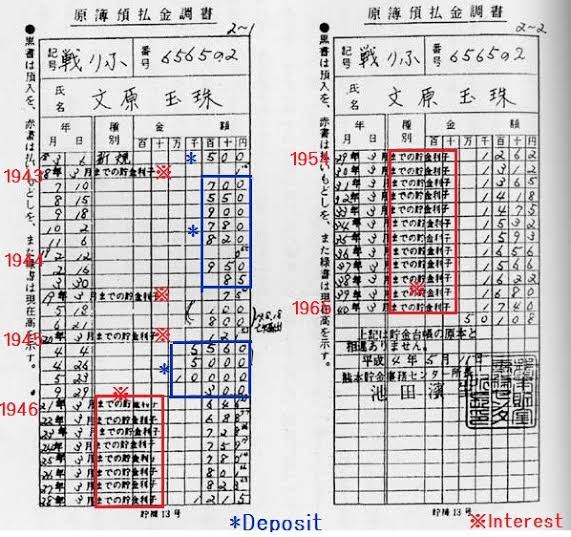 原簿預払金調書
2~1
記号 戦りふ 番号 656502
氏名 文原 玉珠
年月日 種別 金額
百 十 万 千 百 十 円
3 6 新規 * 500
1943 18年 3月までの貯金利子 ※
7 10 700
8 15 550
9 18 900
10 2 * 780
11 6 820
1944
2 16 950
85
19年 3月までの貯金利子 ※ 75
5 18 100
6 21 800
1945 20年 3月までの貯金利子 ※
4 4 5560
4 26 * 5000
5 10000
5 29 300
※
1946 21年 3月までの貯金利子 646
22年 3月までの貯金利子 688
23年 3月までの貯金利子 728
24年 3月までの貯金利子 759
25年 3月までの貯金利子 787
26年 3月までの貯金利子 801
27年 3月までの貯金利子 823
28年 3月までの貯金利子 1215
貯関13号
*Deposit
●黒書は預入を、赤書は払いもどしを、また緑書は現在高を示す。
原簿預払金調書
2~2
記号 戦りふ 番号 656502
氏名 文原 玉珠
年月日 種別 金額
百 十 万 千 百 十 円
1954 29年 3月までの貯金利子 1262
30年 3月までの貯金利子 1312
31年 3月までの貯金利子
32年 3月までの貯金利子 1418
33年 3月までの貯金利子 1475
34年 3月までの貯金利子 1532
35年 3月までの貯金利子 1593
36年 3月までの貯金利子 1656
37年 3月までの貯金利子
38年 3月までの貯金利子 1622
39年 3月までの貯金利子 ※ 1680
1965 40年 3月までの貯金利子
50108
上記は貯金台帳の原本と
相違ありません。
平成4年5月11日
熊本貯金事務センター所長
池田
貯関13号
※Interest
●黒書は預入を、赤書は払いもどしを、また緑書は現在高を示す。